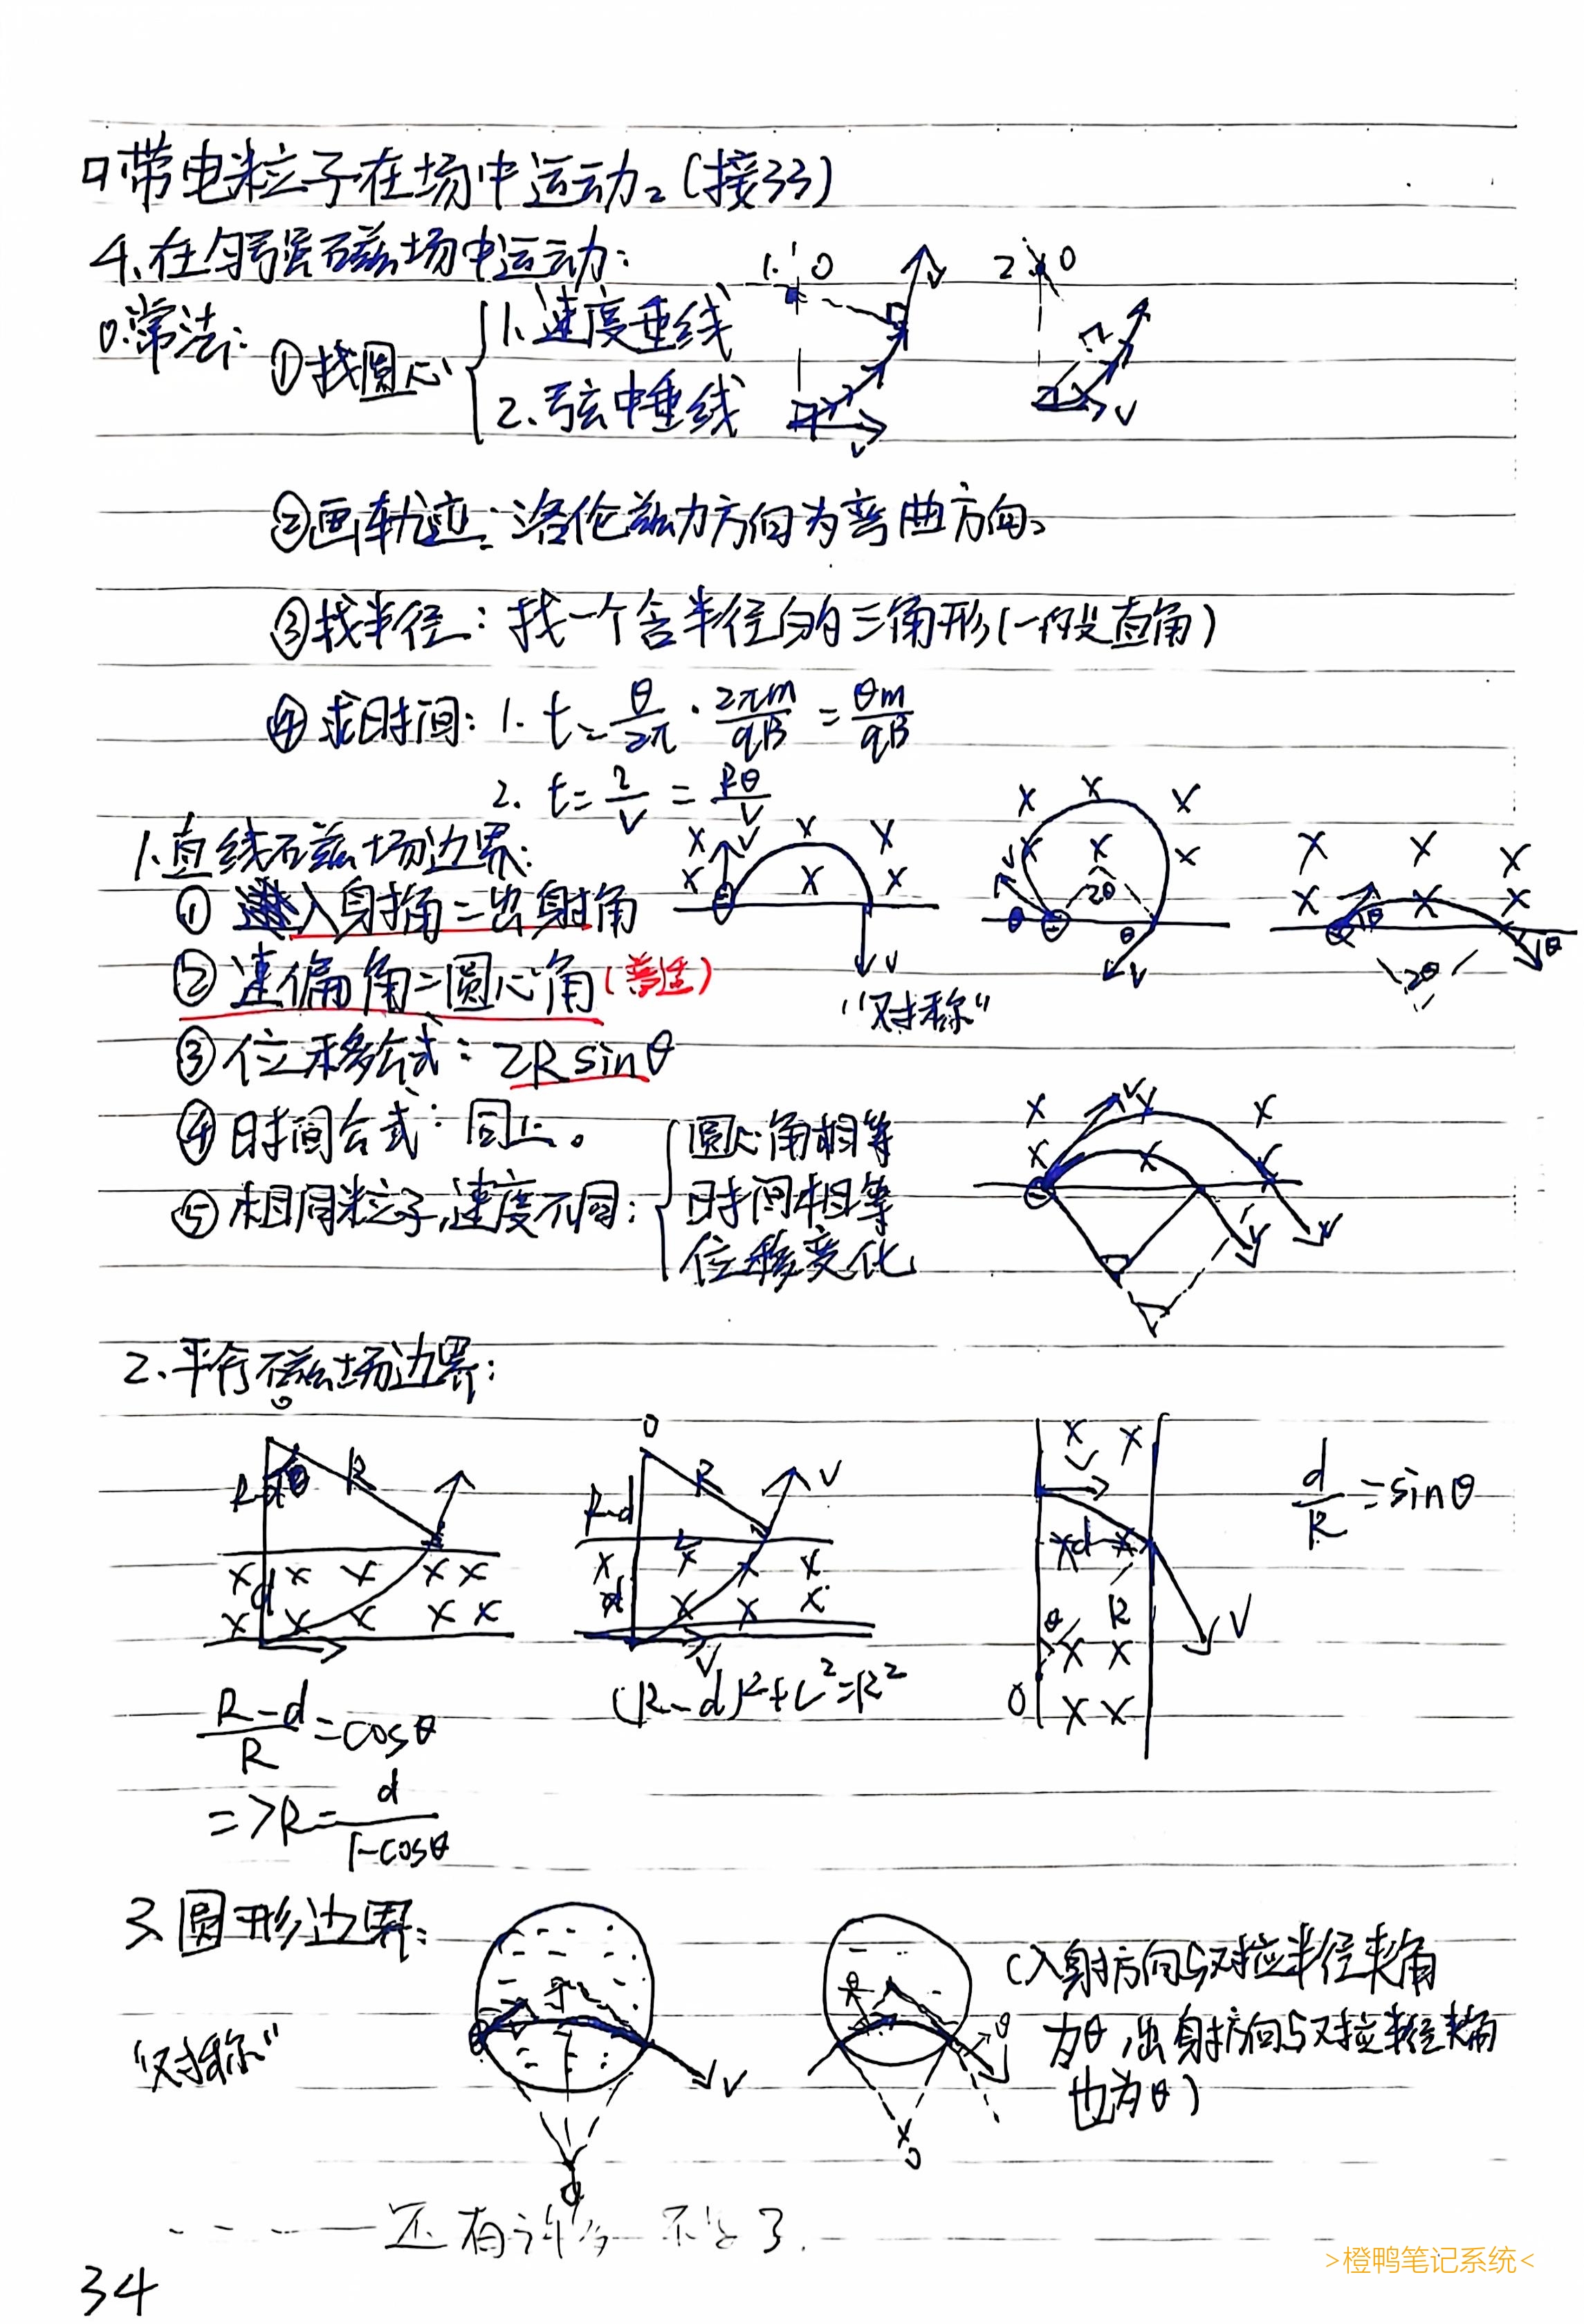 带电粒子在场中运动。(接33)
4、在匀强磁场中运动:
0.常法:
①找圆心 1、速度垂线
2、弦中垂线
1. O V V
2 O V
②画轨迹:洛伦兹力方向为弯曲方向。
③找半径:找一个含半径的三角形(一般是直角)
④求时间: 1. t=θ/2π·2πm/qB=θm/qB
2. t=l/v=Rθ/v
1.直线磁场边界:
①入射角=出射角
②速偏角=圆心角(普适)
"对称"
③位移公式:2Rsinθ
④时间公式:同上。
⑤相同粒子,速度不同: 圆心角相等
时间相等
位移变化
2、平行磁场边界:
R-d/R=cosθ
=>R=d/1-cosθ
(R-d)²+L²=R²
d/R=sinθ
3.圆形边界:
"对称"
(入射方向与对应半径夹角
为θ,出射方向与对应半径夹角
也为θ)
还有许多 不写了.
34
>橙鸭笔记系统<